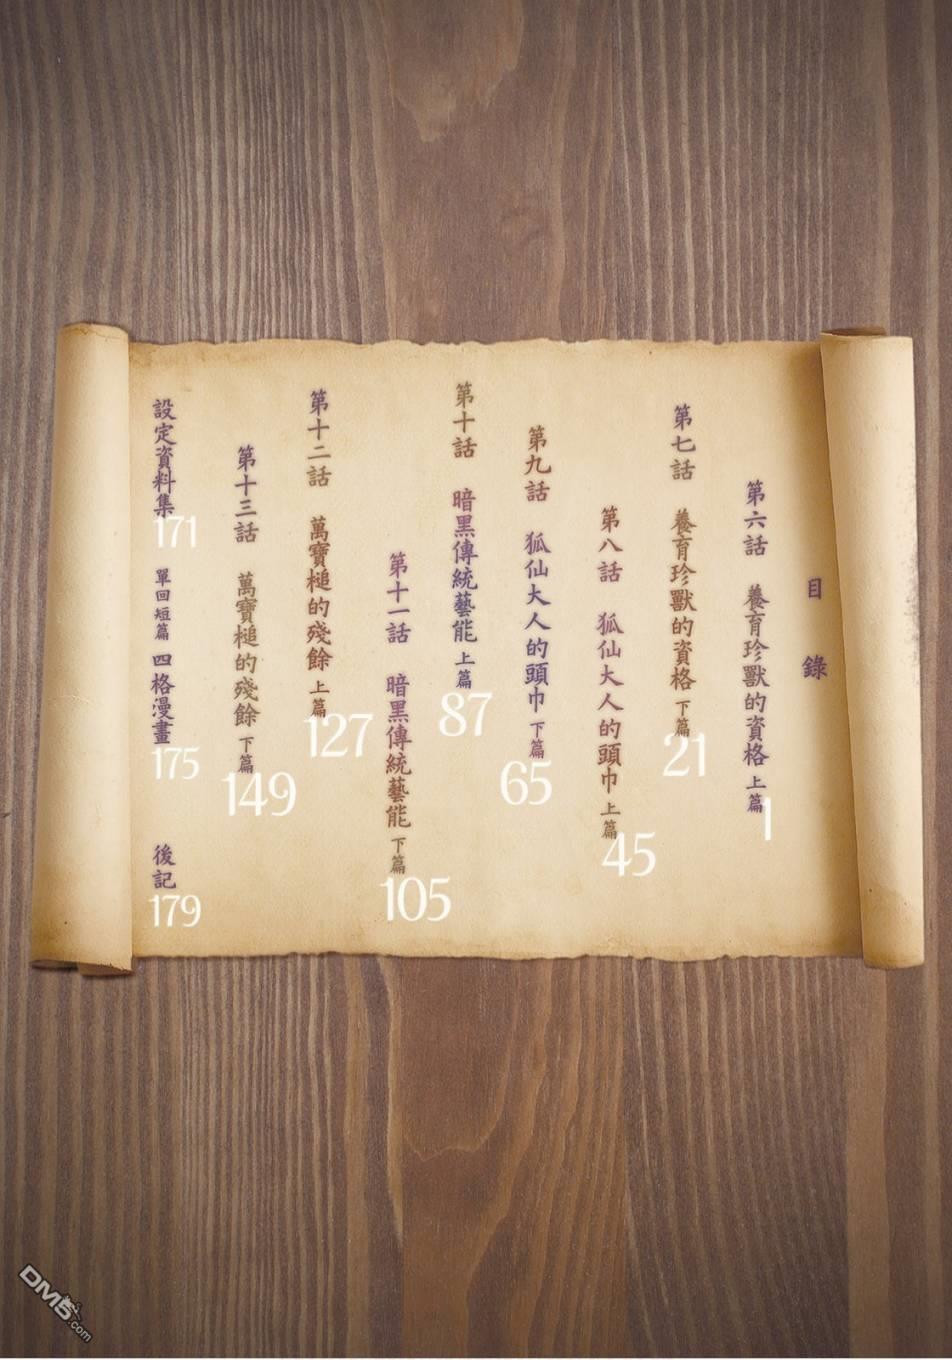 目錄
第六話 養育珍獸的資格 上篇
1
第七話 養育珍獸的資格 下篇
21
第八話 狐仙大人的頭巾 上篇
45
第九話 狐仙大人的頭巾 下篇
65
第十話 暗黑傳統藝能 上篇
87
第十一話 暗黑傳統藝能 下篇
105
第十二話 萬寶槌的殘餘 上篇
127
第十三話 萬寶槌的殘餘 下篇
149
設定資料集
171
單回短篇 四格漫畫
175
後記
179
DM5.com